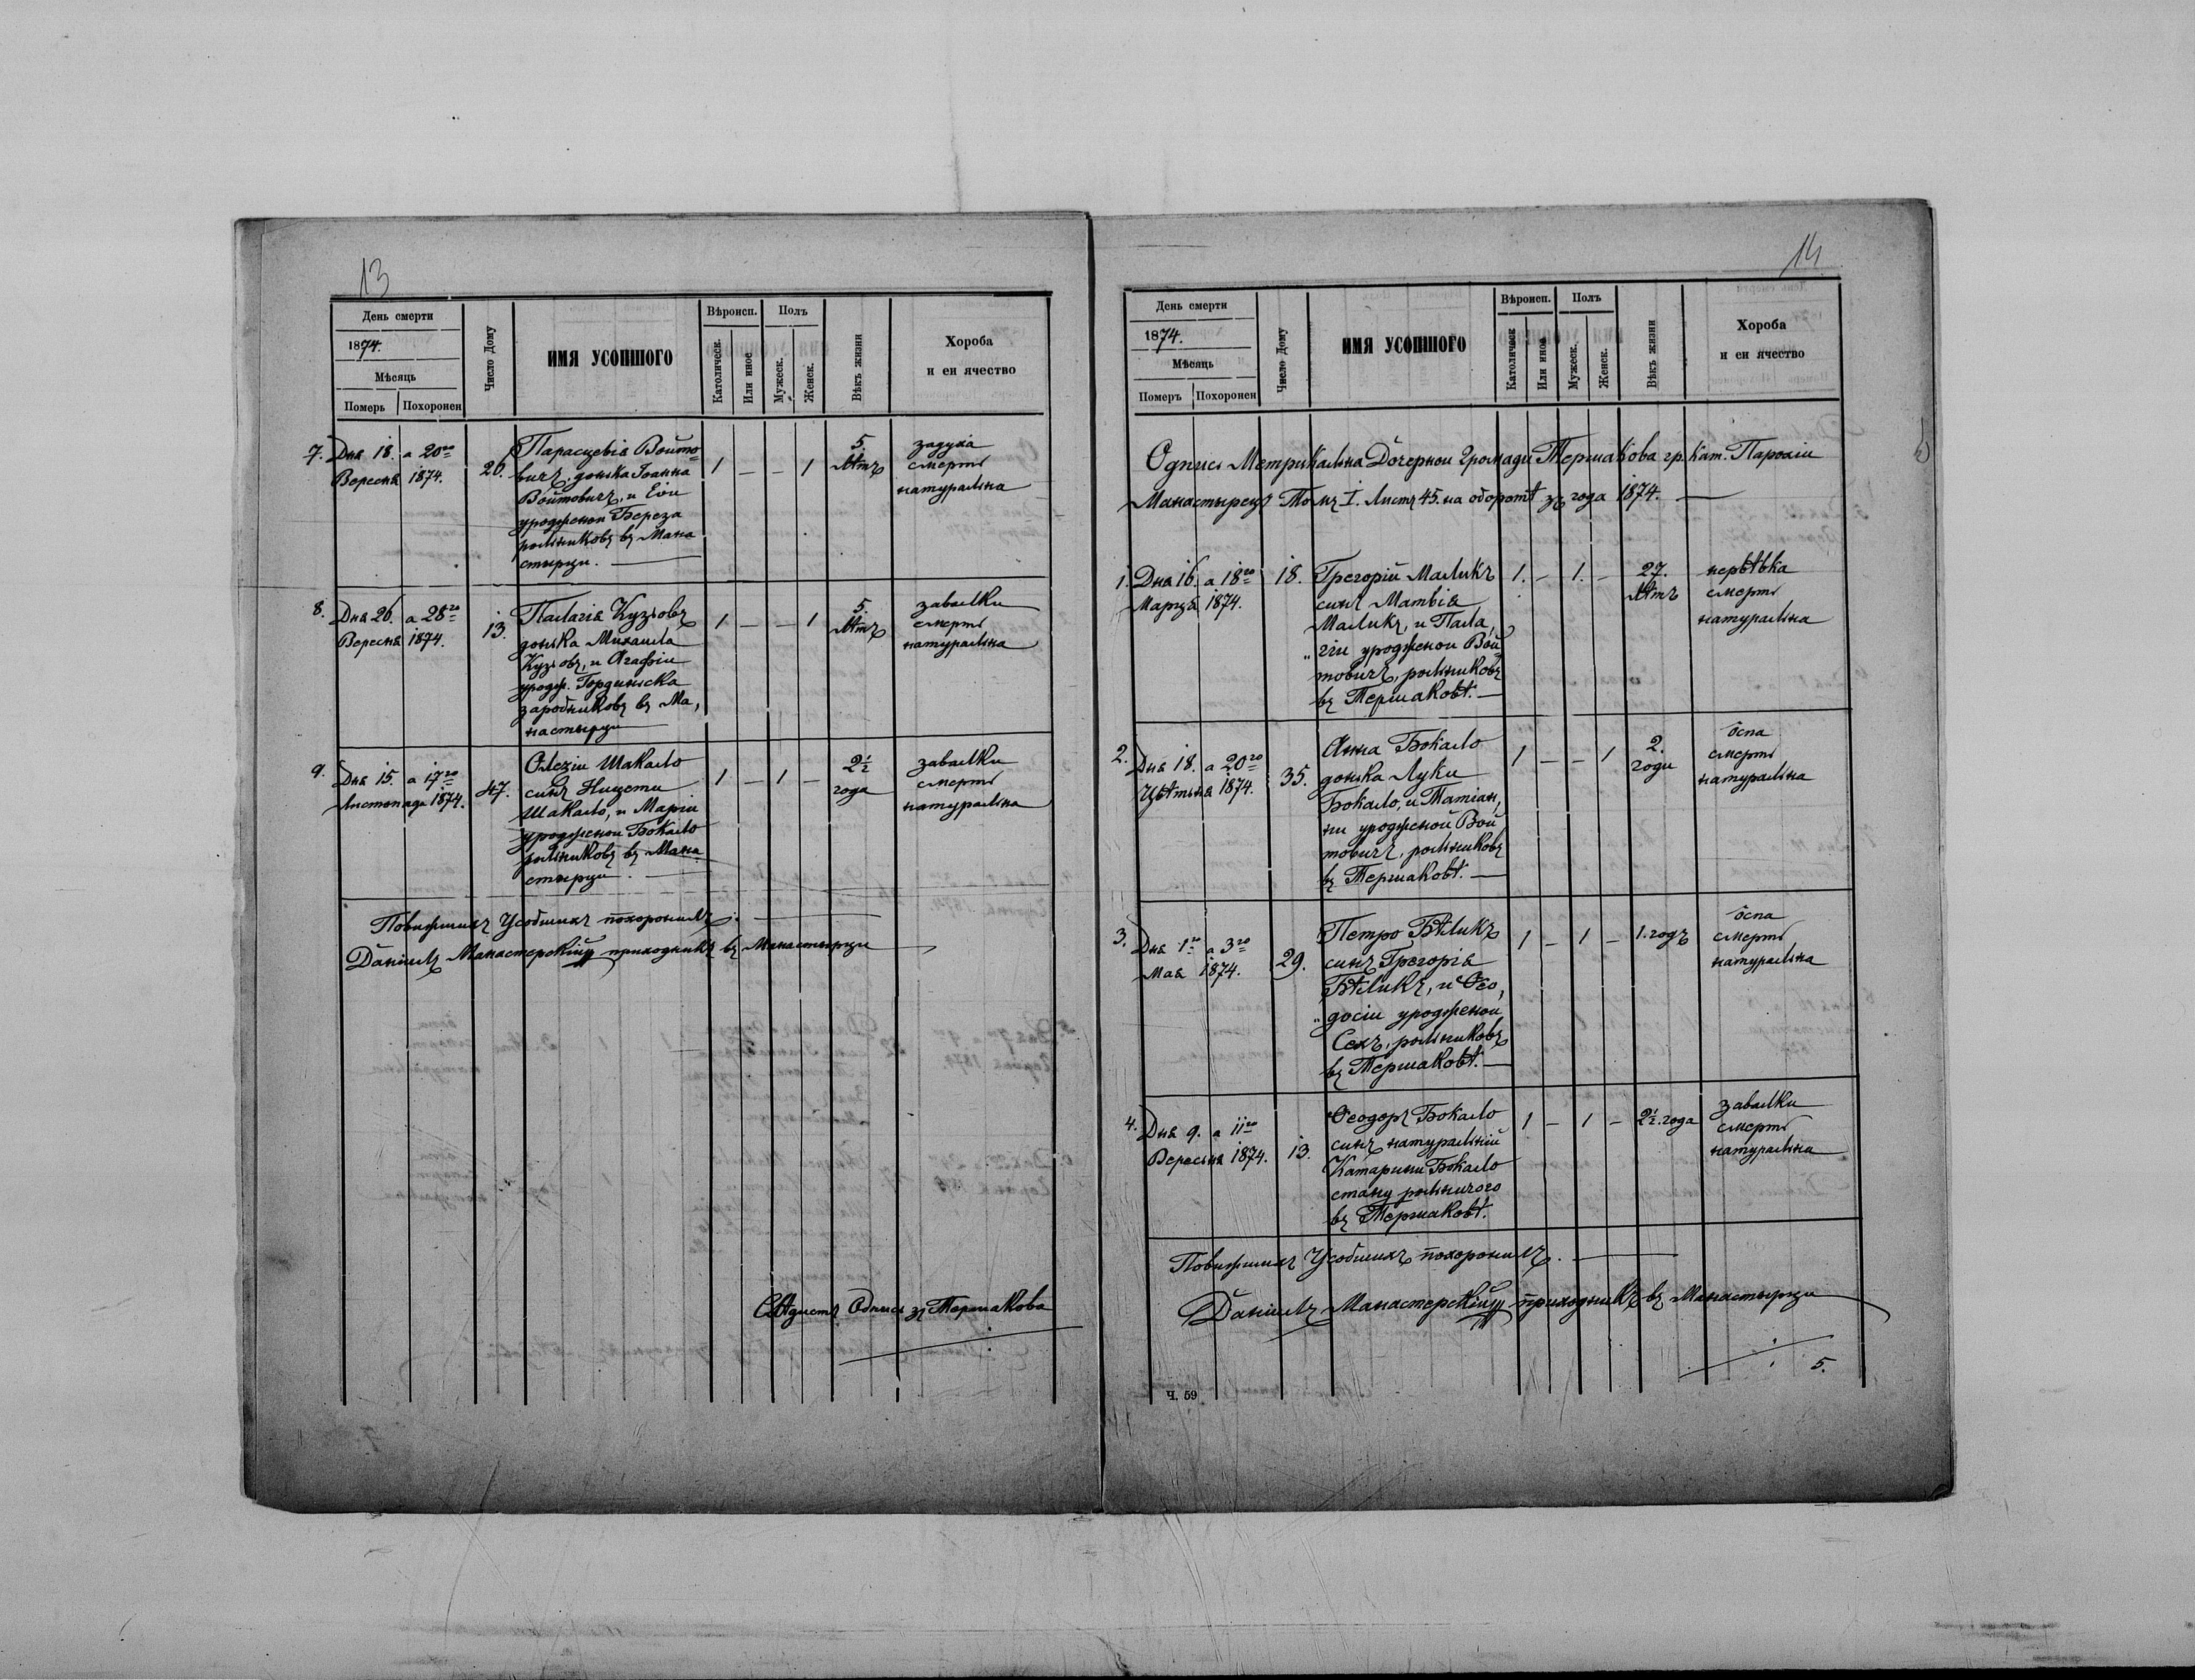 13
День смерти
1874.
Мѣсяць
Померъ
Похоронен
Число Дому
ИМЯ УСОПШОГО
Вѣроисп.
Католическ.
Или иное
Полъ
Мужеск.
Женск.
Вѣкъ жизни
Хороба
и еи ячество
7. Дня 18. а 20го
Вересня 1874.
20.
Парасцевія Войто=
вичъ, донька Іоанна
Войтовичъ, и Евы
урожденои Береза
рольниковъ въ Мана
стырци.
1 – – 1
5.
лѣтъ
задуха
смерть
натуральна
8. Дня 26. а 28го
Вересня 1874.
13.
Палагія Кузьовъ
донька Михаила
Кузьовъ, и Агафіи
урожд. Гординьска
заробниковъ въ Ма,
настырци
1 – – 1
5.
лѣтъ
завалки
смерть
натуральна
9. Дня 15. а 17го
Листопада 1874.
47.
Олезіи Шакало
сынъ Нищети
Шакало, и Маріи
урожденои Бокало
рольниковъ въ Мана
стырци.
1 – 1 –
2½
года
завалки
смерть
натуральна
Повижшихъ Усобшихъ похоронилъ.
Даніилъ Манастерскій приходникъ въ Манастырци
Слѣдистъ Одпись зъ Тершакова
14
День смерти
1874.
Мѣсяць
Померъ
Похоронен
Число Дому
ИМЯ УСОПШОГО
Вѣроисп.
Католическ
Или иное
Полъ
Мужеск.
Женск.
Вѣкъ жизни
Хороба
и еи ячество
Одпись Метрикальна Дочернои Громади Тершакова гр. кат. Парохіи
Манастырецъ Томъ I. Листъ 45. на оборотѣ зъ года 1874.
1. Дня 16. а 18го
Марця 1874.
18.
Григорій Маликъ
сынъ Матвія
Маликъ, и Пала,
„гіи урожденои Вой
товичъ, рольниковъ
въ Тершаковѣ.
1. – 1. –
27.
лѣтъ
нервѣвка
смерть
натуральна
2. Дня 18. а 20го
Цвѣтьня 1874.
35.
Анна Бокало
донька Луки
Бокало, и Татіан,
ни урожденой Вой
товичъ, рольниковъ
въ Тершаковѣ.
1 – – 1
2.
годи
оспа
смерть
натуральна
3. Дня 1го а 3го
Мая 1874.
29.
Петро Бѣликъ
сынъ Григорія
Бѣликъ, и Ѳео,
„досіи урожденои
Сехъ, рольниковъ
въ Тершаковѣ.
1 – 1 –
1. годъ
оспа
смерть
натуральна
4. Дня 9. а 11го
Вересьня 1874.
13.
Ѳеодоръ Бокало
сынъ натуральній
Катарини Бокало
стану рольничого
въ Тершаковѣ.
1 – 1 –
2½. года
завалки
смерть
натуральна
Повижшихъ Усобшихъ похоронилъ.
Даніилъ Манастерскій приходникъ въ Манастырци
5.
Ч. 59